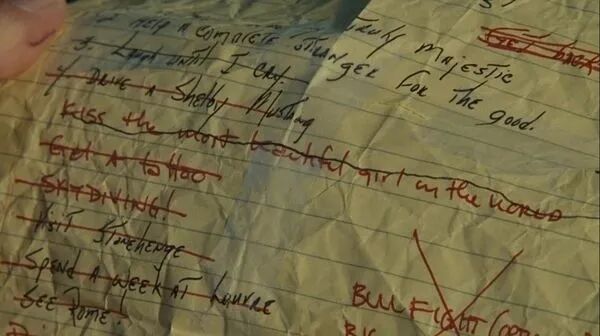 truly majestic
Help a complete stranger for the good.
3. Laugh until I cry
4. Drive a Shelby Mustang
Kiss the most beautiful girl in the world
Get a tattoo
SKYDIVING!
Visit Stonehenge
Spend A week AT Louvre
See Rome!
Get back
BULL FIGHT